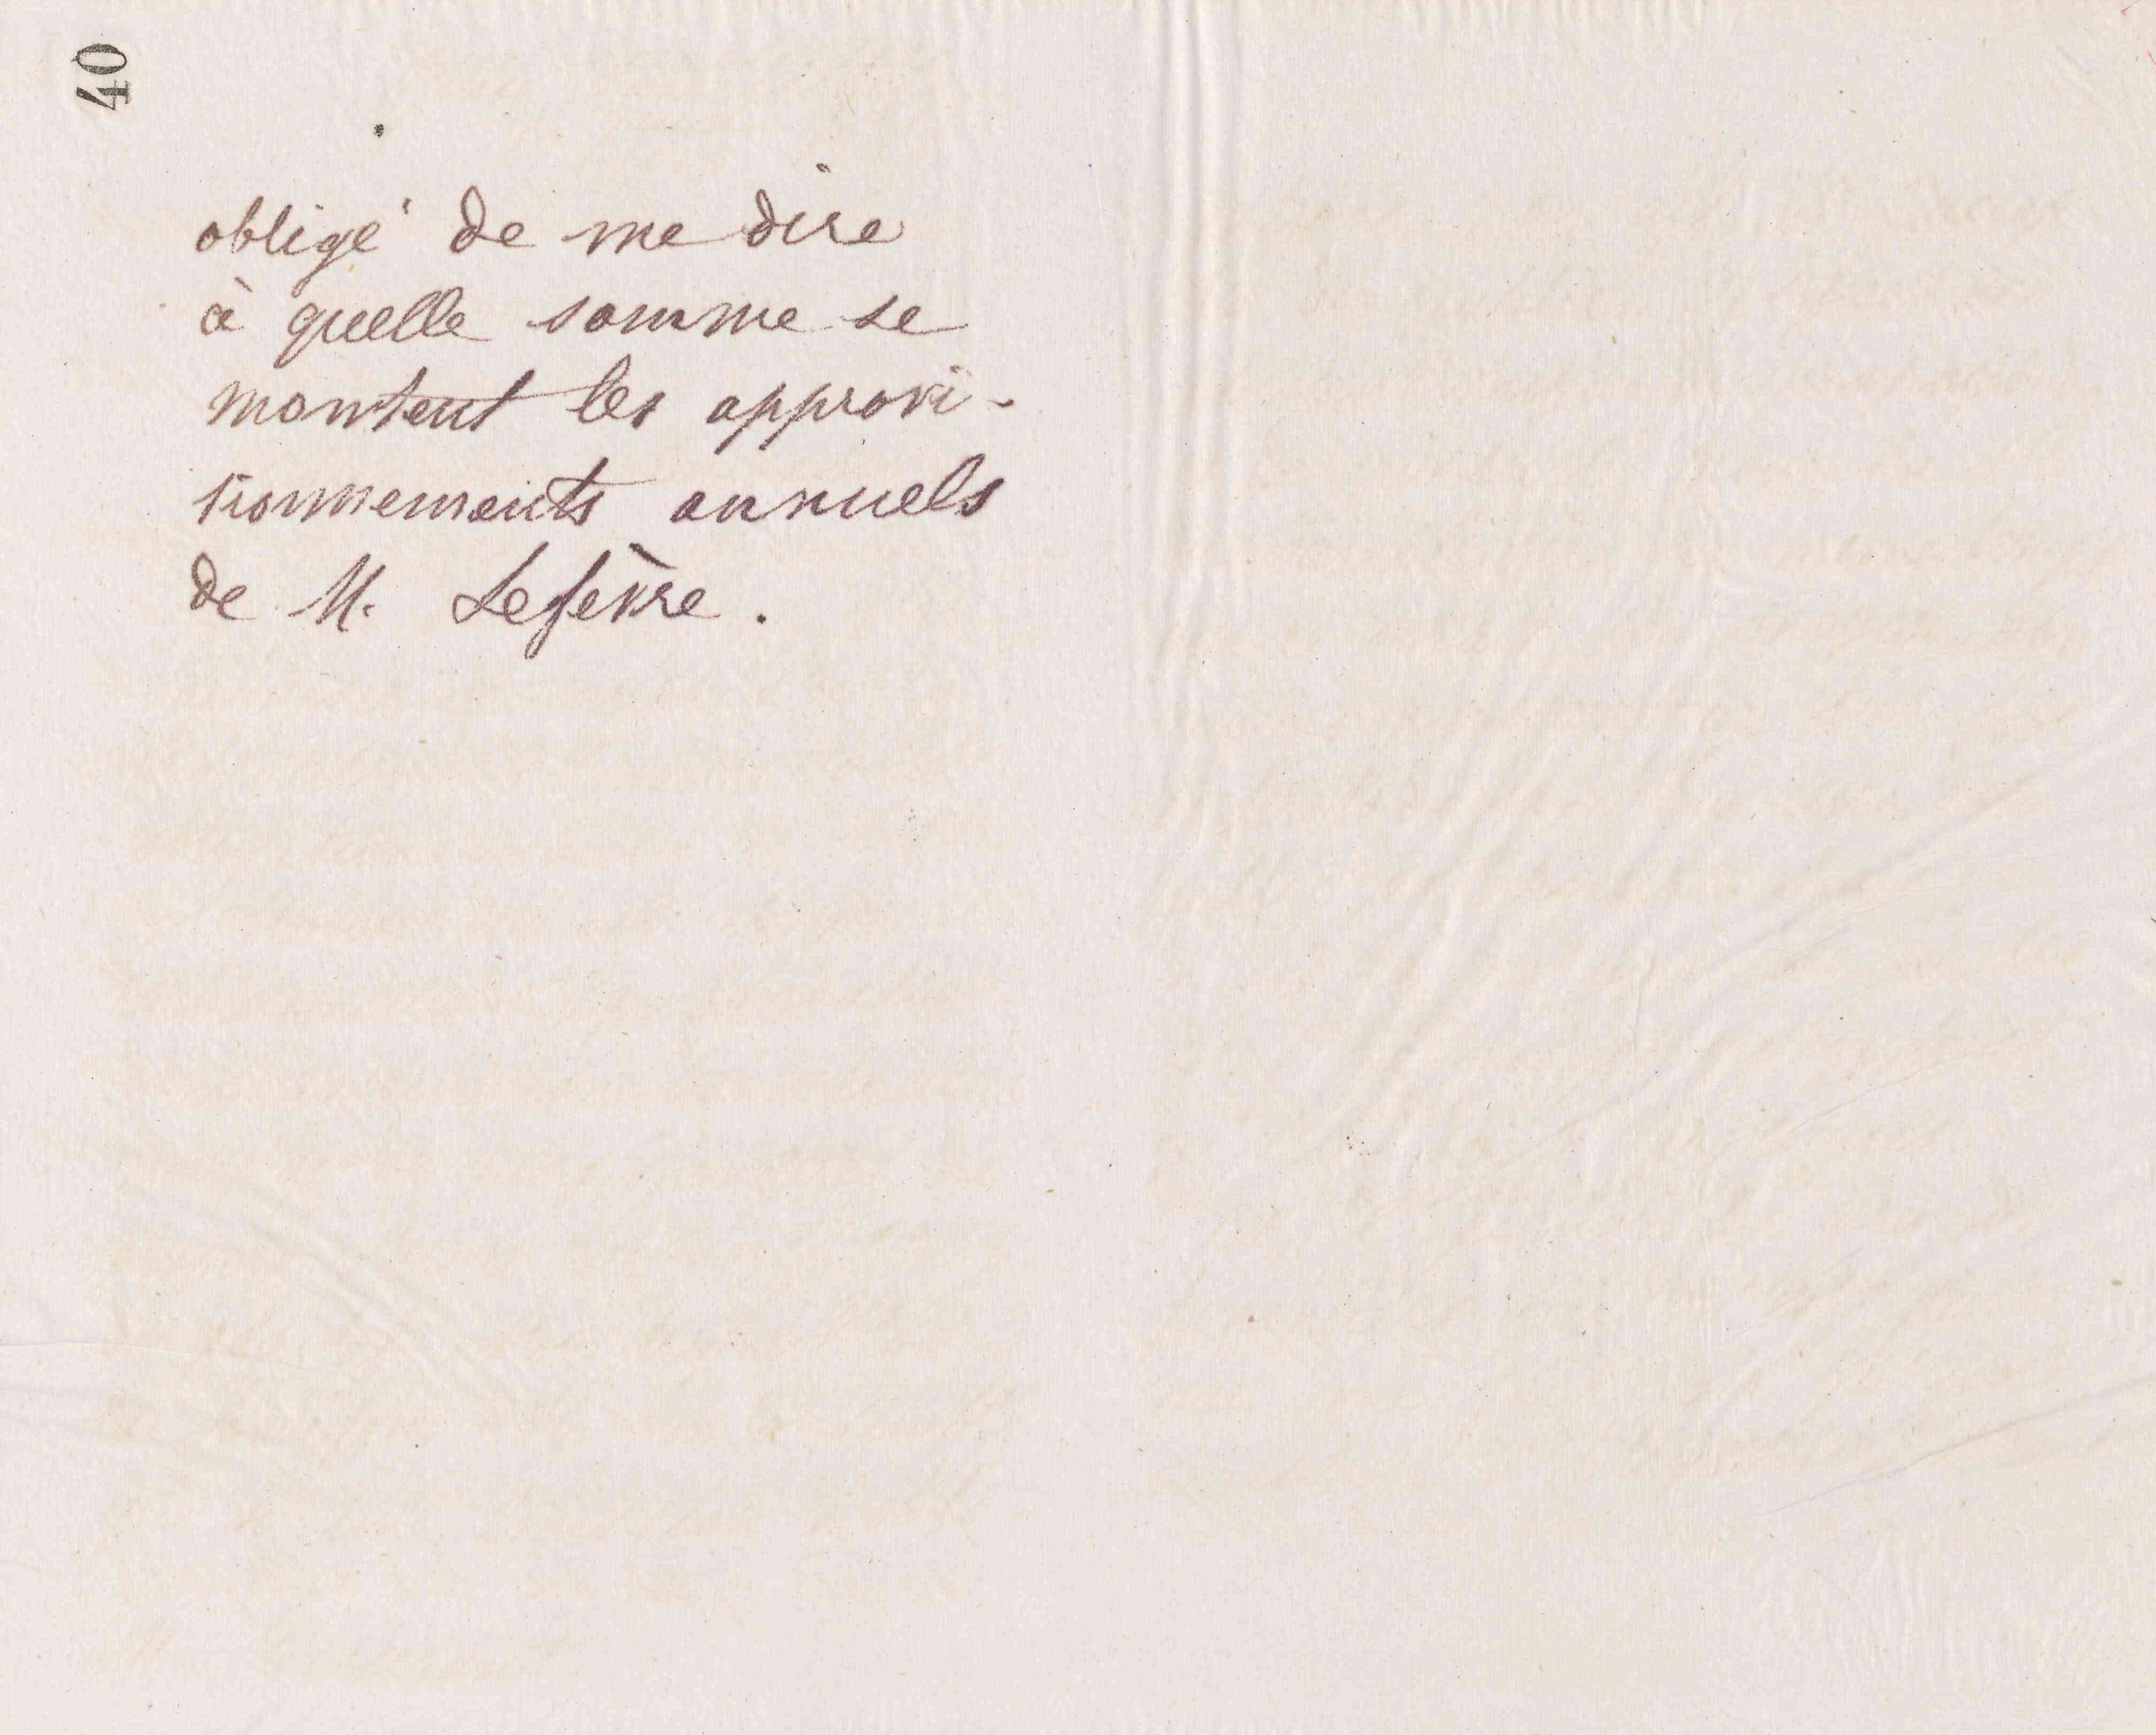 40
obligé de me dire
à quelle somme se
montent les approvi-
sionnements annuels
de M. Lefèvre.